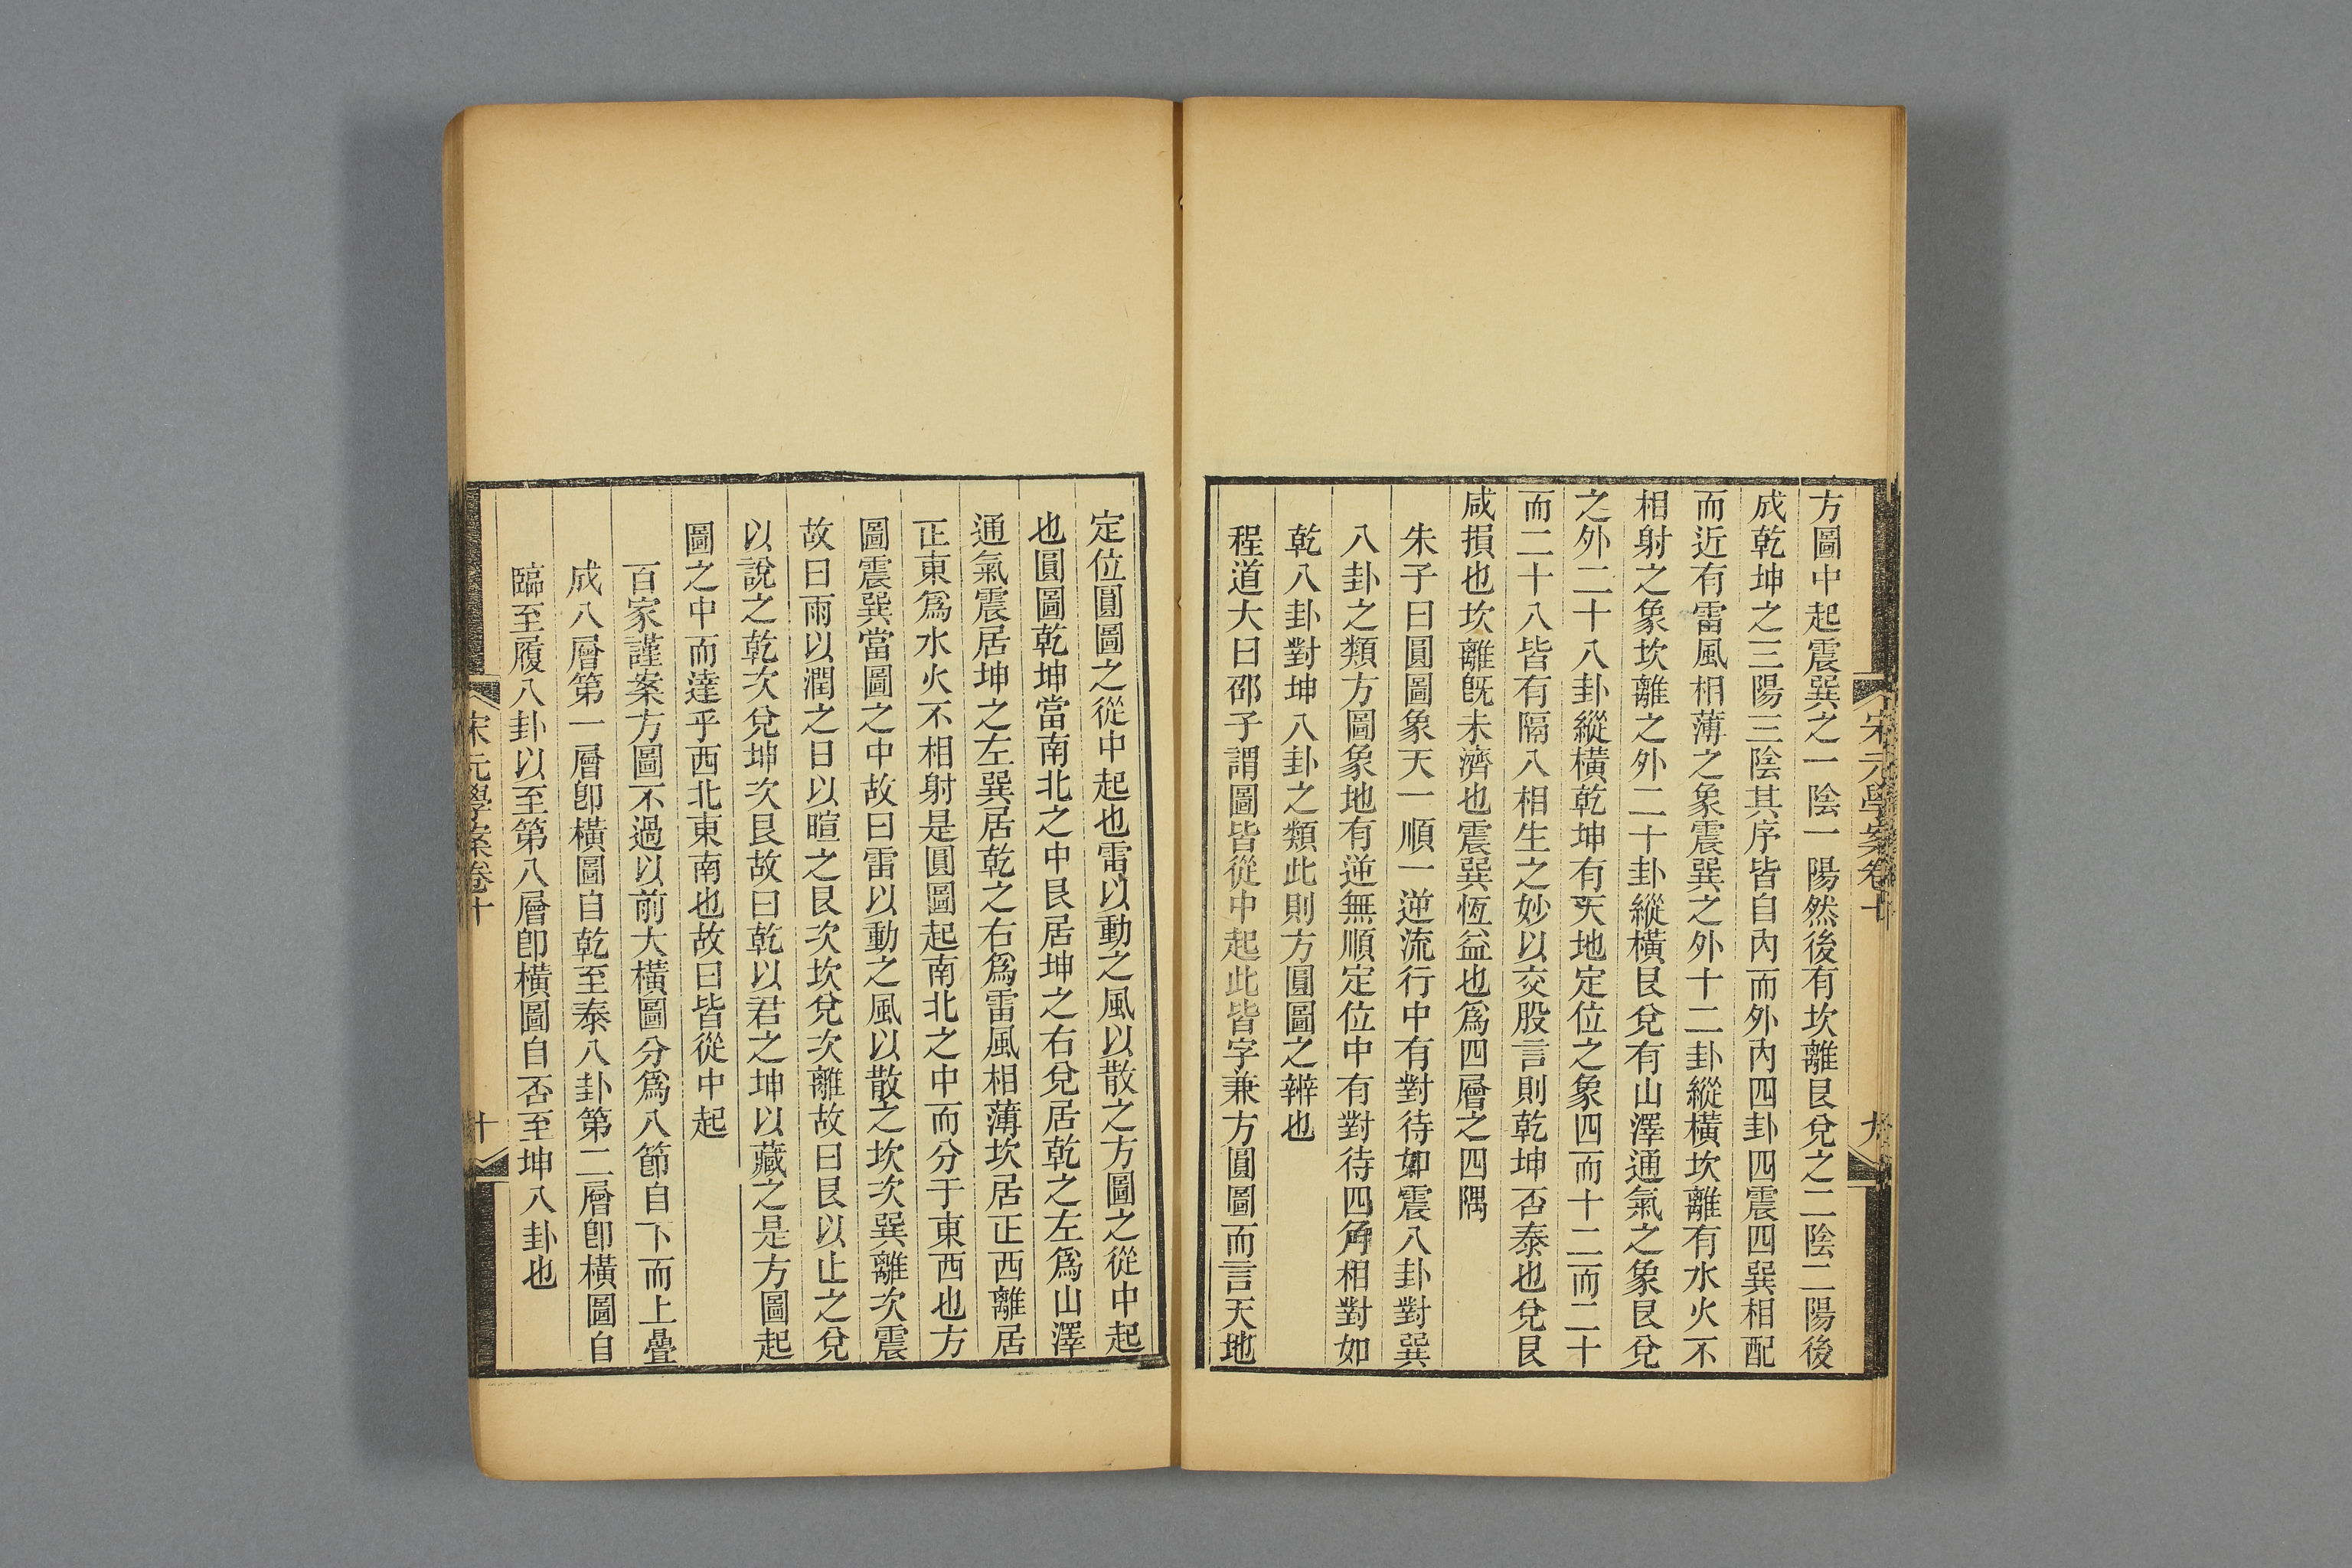 宋元學案卷十
九
方圖中起震巽之一陰一陽然後有坎離艮兌之二陰二陽後
成乾坤之三陽三陰其序皆自內而外內四卦四震四巽相配
而近有雷風相薄之象震巽之外十二卦縱橫坎離有水火不
相射之象坎離之外二十卦縱橫艮兌有山澤通氣之象艮兌
之外二十八卦縱橫乾坤有天地定位之象四而十二而二十
而二十八皆有隔八相生之妙以交股言則乾坤否泰也兌艮
咸損也坎離旣未濟也震巽恆益也爲四層之四隅
朱子曰圓圖象天一順一逆流行中有對待如震八卦對巽
八卦之類方圖象地有逆無順定位中有對待四角相對如
乾八卦對坤八卦之類此則方圓圖之辨也
程道大曰邵子謂圖皆從中起此皆字兼方圓圖而言天地
定位圓圖之從中起也雷以動之風以散之方圖之從中起
也圓圖乾坤當南北之中艮居坤之右兌居乾之左爲山澤
通氣震居坤之左巽居乾之右爲雷風相薄坎居正西離居
正東爲水火不相射是圓圖起南北之中而分于東西也方
圖震巽當圖之中故曰雷以動之風以散之坎次巽離次震
故曰雨以潤之日以暄之艮次坎兌次離故曰艮以止之兌
以說之乾次兌坤次艮故曰乾以君之坤以藏之是方圖起
圖之中而達乎西北東南也故曰皆從中起
百家謹案方圖不過以前大橫圖分爲八節自下而上疊
成八層第一層卽橫圖自乾至泰八卦第二層卽橫圖自
臨至履八卦以至第八層卽橫圖自否至坤八卦也
宋元學案卷十
十